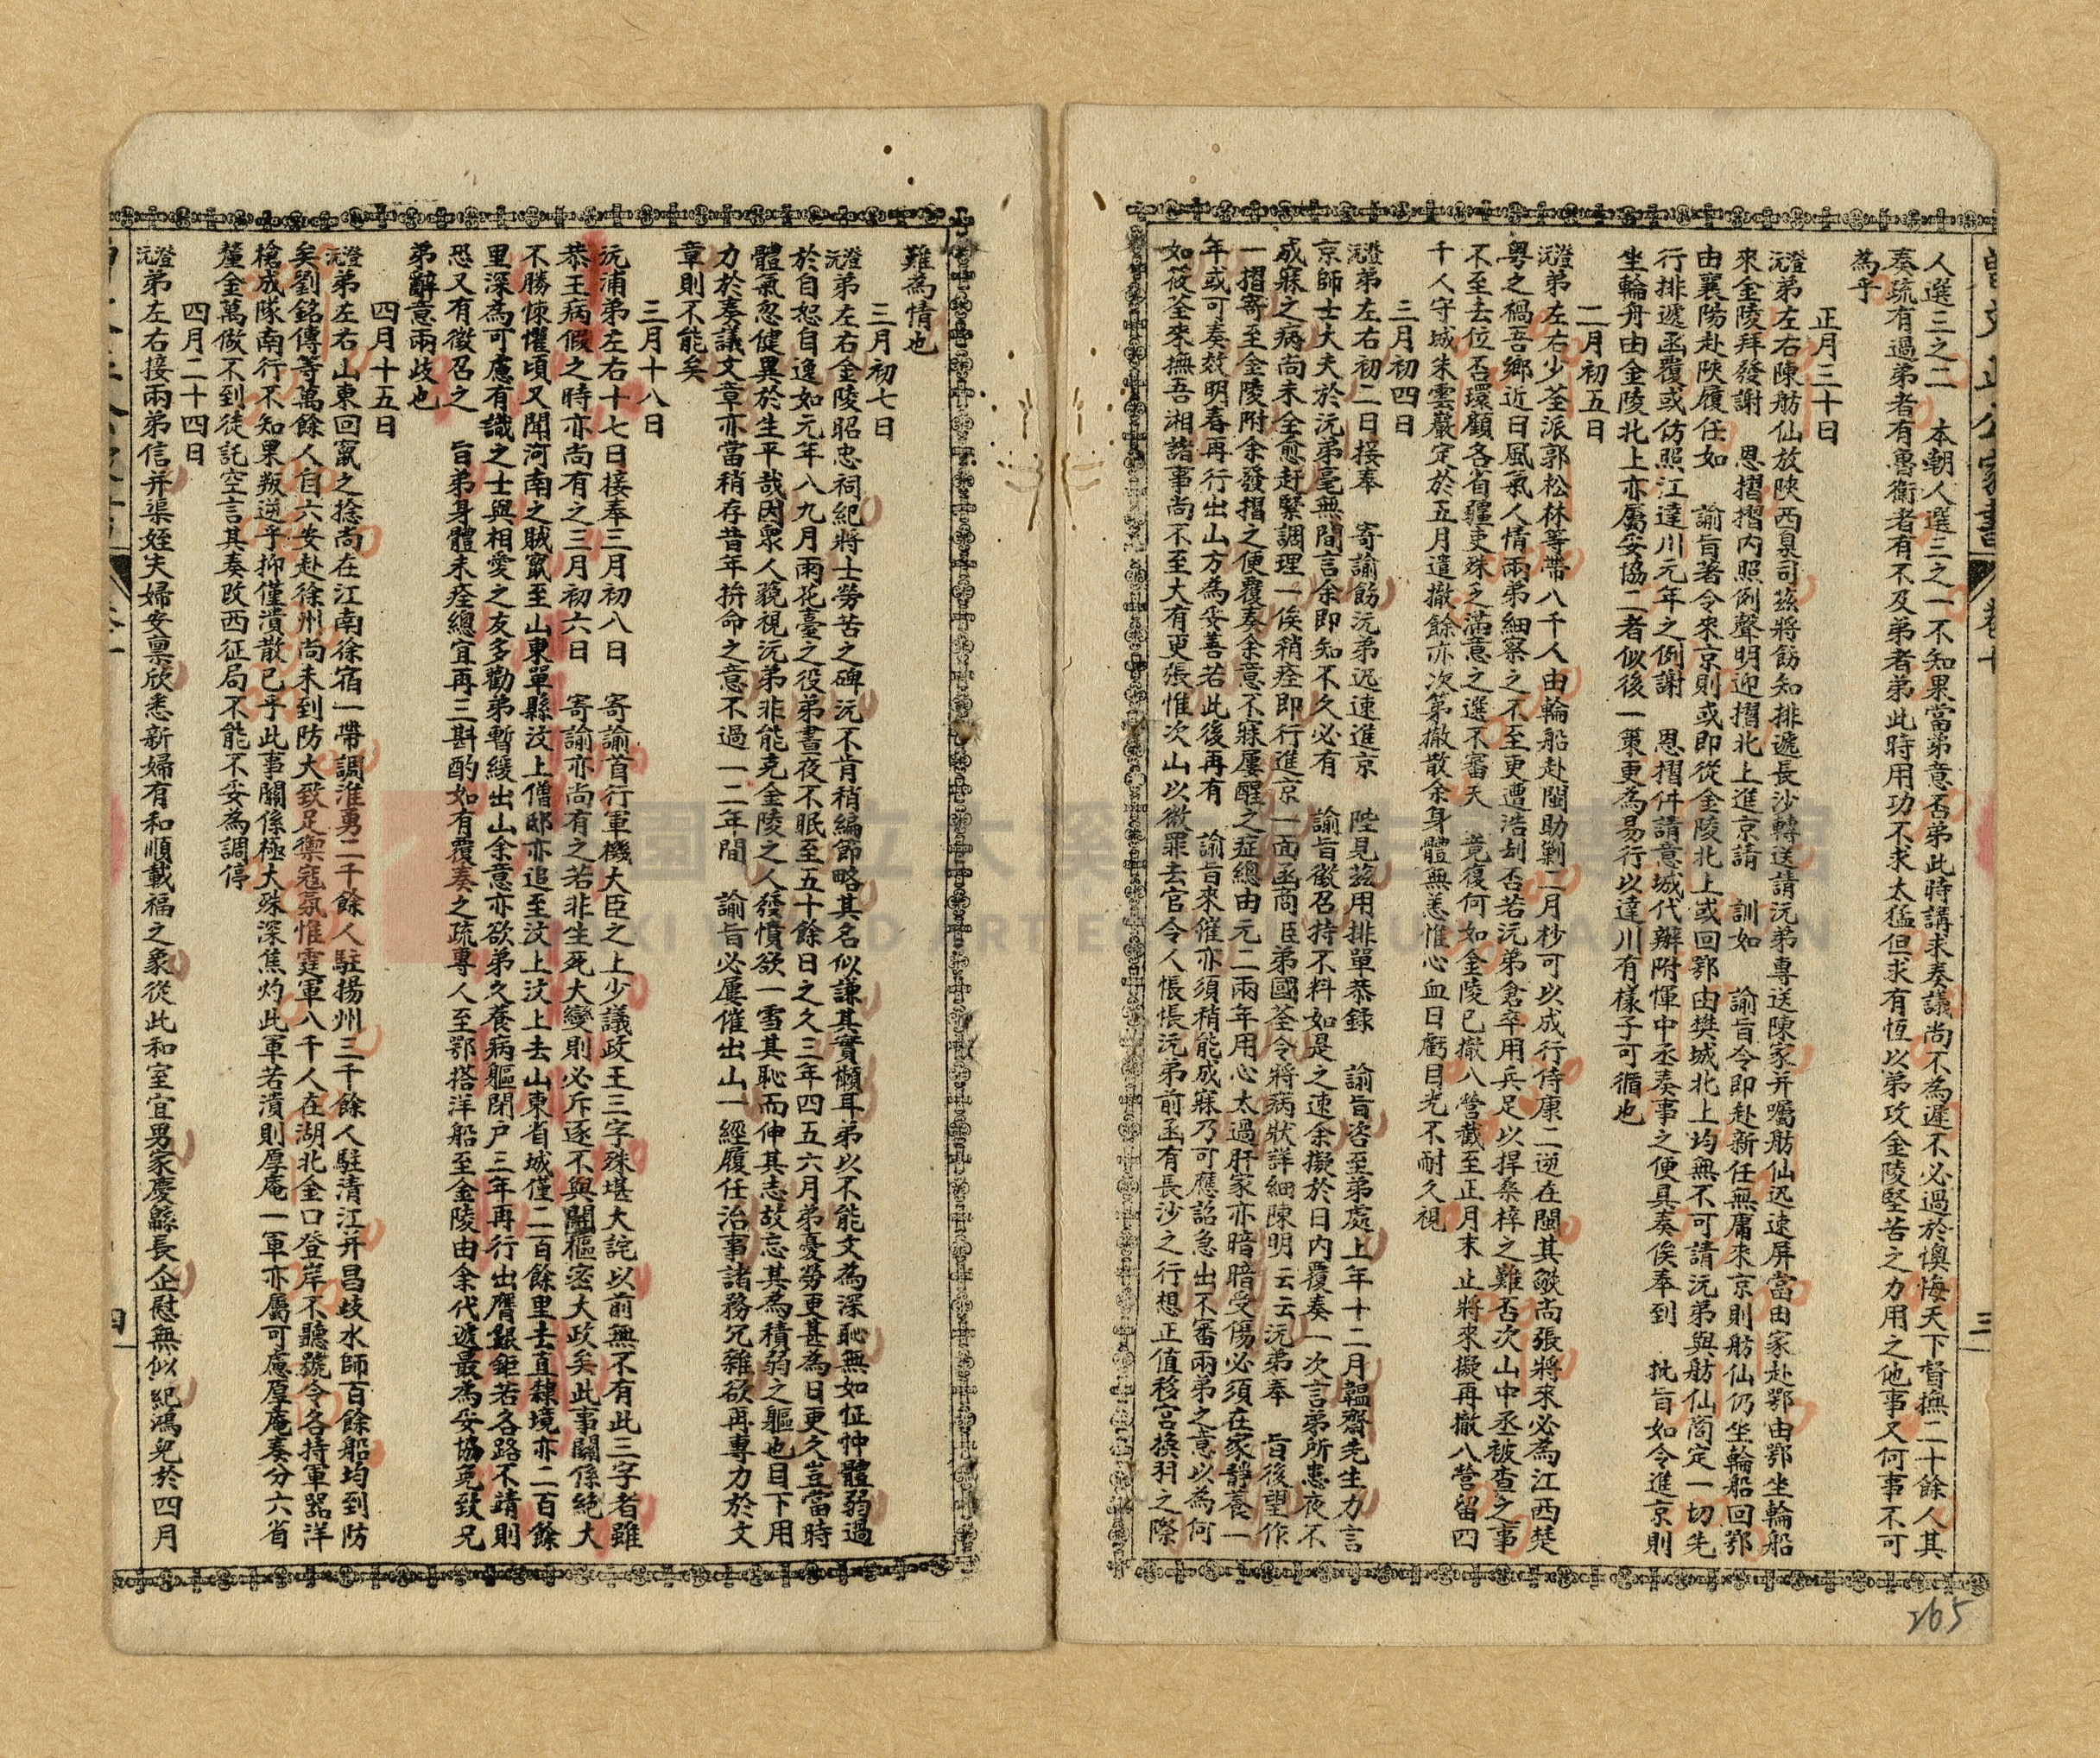 曾文正公家書 卷十 三
人選三之二 本朝人選三之一不知果當弟意否弟此時講求奏議尚不為遲不必過於懊悔天下督撫二十餘人其
奏疏有過弟者有魯衛者有不及弟者弟此時用功不求太猛但求有恆以弟攻金陵堅苦之力用之他事又何事不可
為乎
正月三十日
澄沅弟左右陳舫仙放陝西臬司茲將飭知排遞長沙轉送請沅弟專送陳家并囑舫仙迅速屏當由家赴鄂由鄂坐輪船
來金陵拜發謝 恩摺摺內照例聲明迎摺北上進京請 訓如 諭旨令即赴新任無庸來京則舫仙仍坐輪船回鄂
由襄陽赴陝履任如 諭旨著令來京則或即從金陵北上或回鄂由樊城北上均無不可請沅弟與舫仙商定一切先
行排遞函覆或仿照江達川元年之例謝 恩摺件請意城代辦附惲中丞奏事之便具奏俟奉到 批旨如令進京則
坐輪舟由金陵北上亦屬妥協二者似後一策更為易行以達川有樣子可循也
二月初五日
澄沅弟左右少荃派郭松林等帶八千人由輪船赴閩助剿二月杪可以成行侍康二逆在閩其燄尚張將來必為江西楚
粵之禍吾鄉近日風氣人情兩弟細察之不至更遭浩刦否若沅弟倉卒用兵足以捍桑梓之難否次山中丞被查之事
不至去位否環顧各省疆吏殊之滿意之選不審天 竟復何如金陵已撤八營截至正月末止將來擬再撤八營留四
千人守城朱雲巖定於五月遣撤餘亦次第撤散余身體無恙惟心血日虧目光不耐久視
三月初四日
澄沅弟左右初二日接奉 寄諭飭沅弟迅速進京 陛見茲用排單恭錄 諭旨咨至弟處上年十二月韞齋先生力言
京師士大夫於沅弟毫無間言余即知不久必有 諭旨徵召持不料如是之速余擬於日內覆奏一次言弟所患夜不
成寐之病尚未全愈赶緊調理一俟稍痊即行進京一面函商臣弟國荃令將病狀詳細陳明云云沅弟奉 旨後望作
一摺寄至金陵附余發摺之便覆奏余意不寐屢醒之症總由元二兩年用心太過肝家亦暗暗受傷必須在家靜養一
年或可奏效明春再行出山方為妥善若此後再有 諭旨來催亦須稍能成寐乃可應詔急出不審兩弟之意以為何
如筱荃來撫吾湘諸事尚不至大有更張惟次山以微罪去官令人悵悵沅弟前函有長沙之行想正值移宮換羽之際
難為情也
三月初七日
澄沅弟左右金陵昭忠祠紀將士勞苦之碑沅不肯稍編節略其名似謙其實懶耳弟以不能文為深恥無如怔忡體弱過
於自恕自逸如元年八九月雨花臺之役弟晝夜不眠至五十餘日之久三年四五六月弟憂勞更甚為日更久豈當時
體氣忽健異於生平哉因衆人藐視沅弟非能克金陵之人發憤欲一雪其恥而伸其志故忘其為積弱之軀也目下用
力於奏議文章亦當稍存昔年拚命之意不過一二年間 諭旨必屢催出山一經履任治事諸務冗雜欲再專力於文
章則不能矣
三月十八日
沅浦弟左右十七日接奉三月初八日 寄諭首行軍機大臣之上少議政王三字殊堪大詫以前無不有此三字者雖
恭王病假之時亦尚有之三月初六日 寄諭亦尚有之若非生死大變則必斥逐不與關樞密大政矣此事關係絶大
不勝悚懼頃又聞河南之賊竄至山東單縣汶上僧邸亦追至汶上汶上去山東省城僅二百餘里去直隸境亦二百餘
里深為可慮有識之士與相愛之友多勸弟暫緩出山余意亦欲弟久養病軀閉户三年再行出膺鉅若各路不靖則
恐又有徵召之 旨弟身體未痊總宜再三斟酌如有覆奏之疏專人至鄂搭洋船至金陵由余代遞最為妥協免致兄
弟辭意兩歧也
四月十五日
澄沅弟左右山東回竄之捻尚在江南徐宿一帶調淮勇二千餘人駐揚州三千餘人駐清江并昌歧水師百餘船均到防
矣劉銘傳等萬餘人自六安赴徐州尚未到防大致足禦寇氛惟霆軍八千人在湖北金口登岸不聽號令各持軍器洋
槍成隊南行不知果叛逆乎抑僅潰散已乎此事關係極大殊深焦灼此軍若潰則厚庵一軍亦屬可慮厚庵奏分六省
釐金萬做不到徒託空言其奏改西征局不能不妥為調停
四月二十四日
澄沅弟左右接兩弟信并渠姪夫婦安稟欣悉新婦有和順載福之象從此和室宜男家慶緜長企慰無似紀鴻兒於四月
四
265